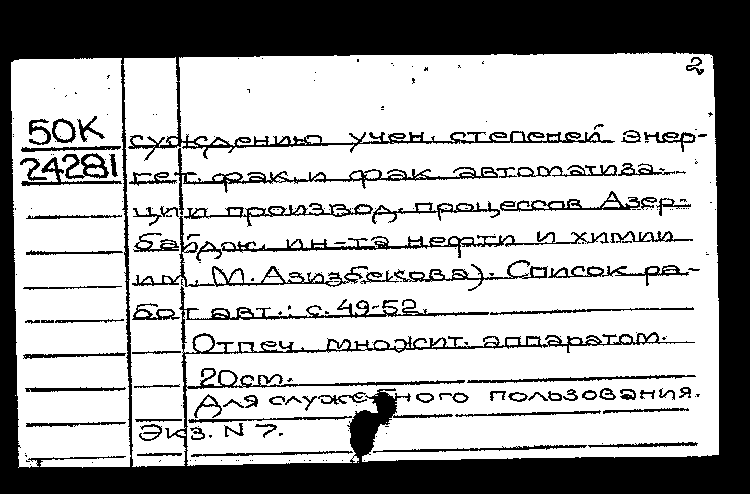 2
50К
24281
суждению учен. степеней энер-
гет. фак. и фак. автоматиза-
ции производ. процессов Азер-
байдж. ин-та нефти и химии
им. М. Азизбекова). Список ра-
бот авт.: с. 49-52.
Отпеч. множит. аппаратом.
20см.
Для служебного пользования.
Экз. N 7.